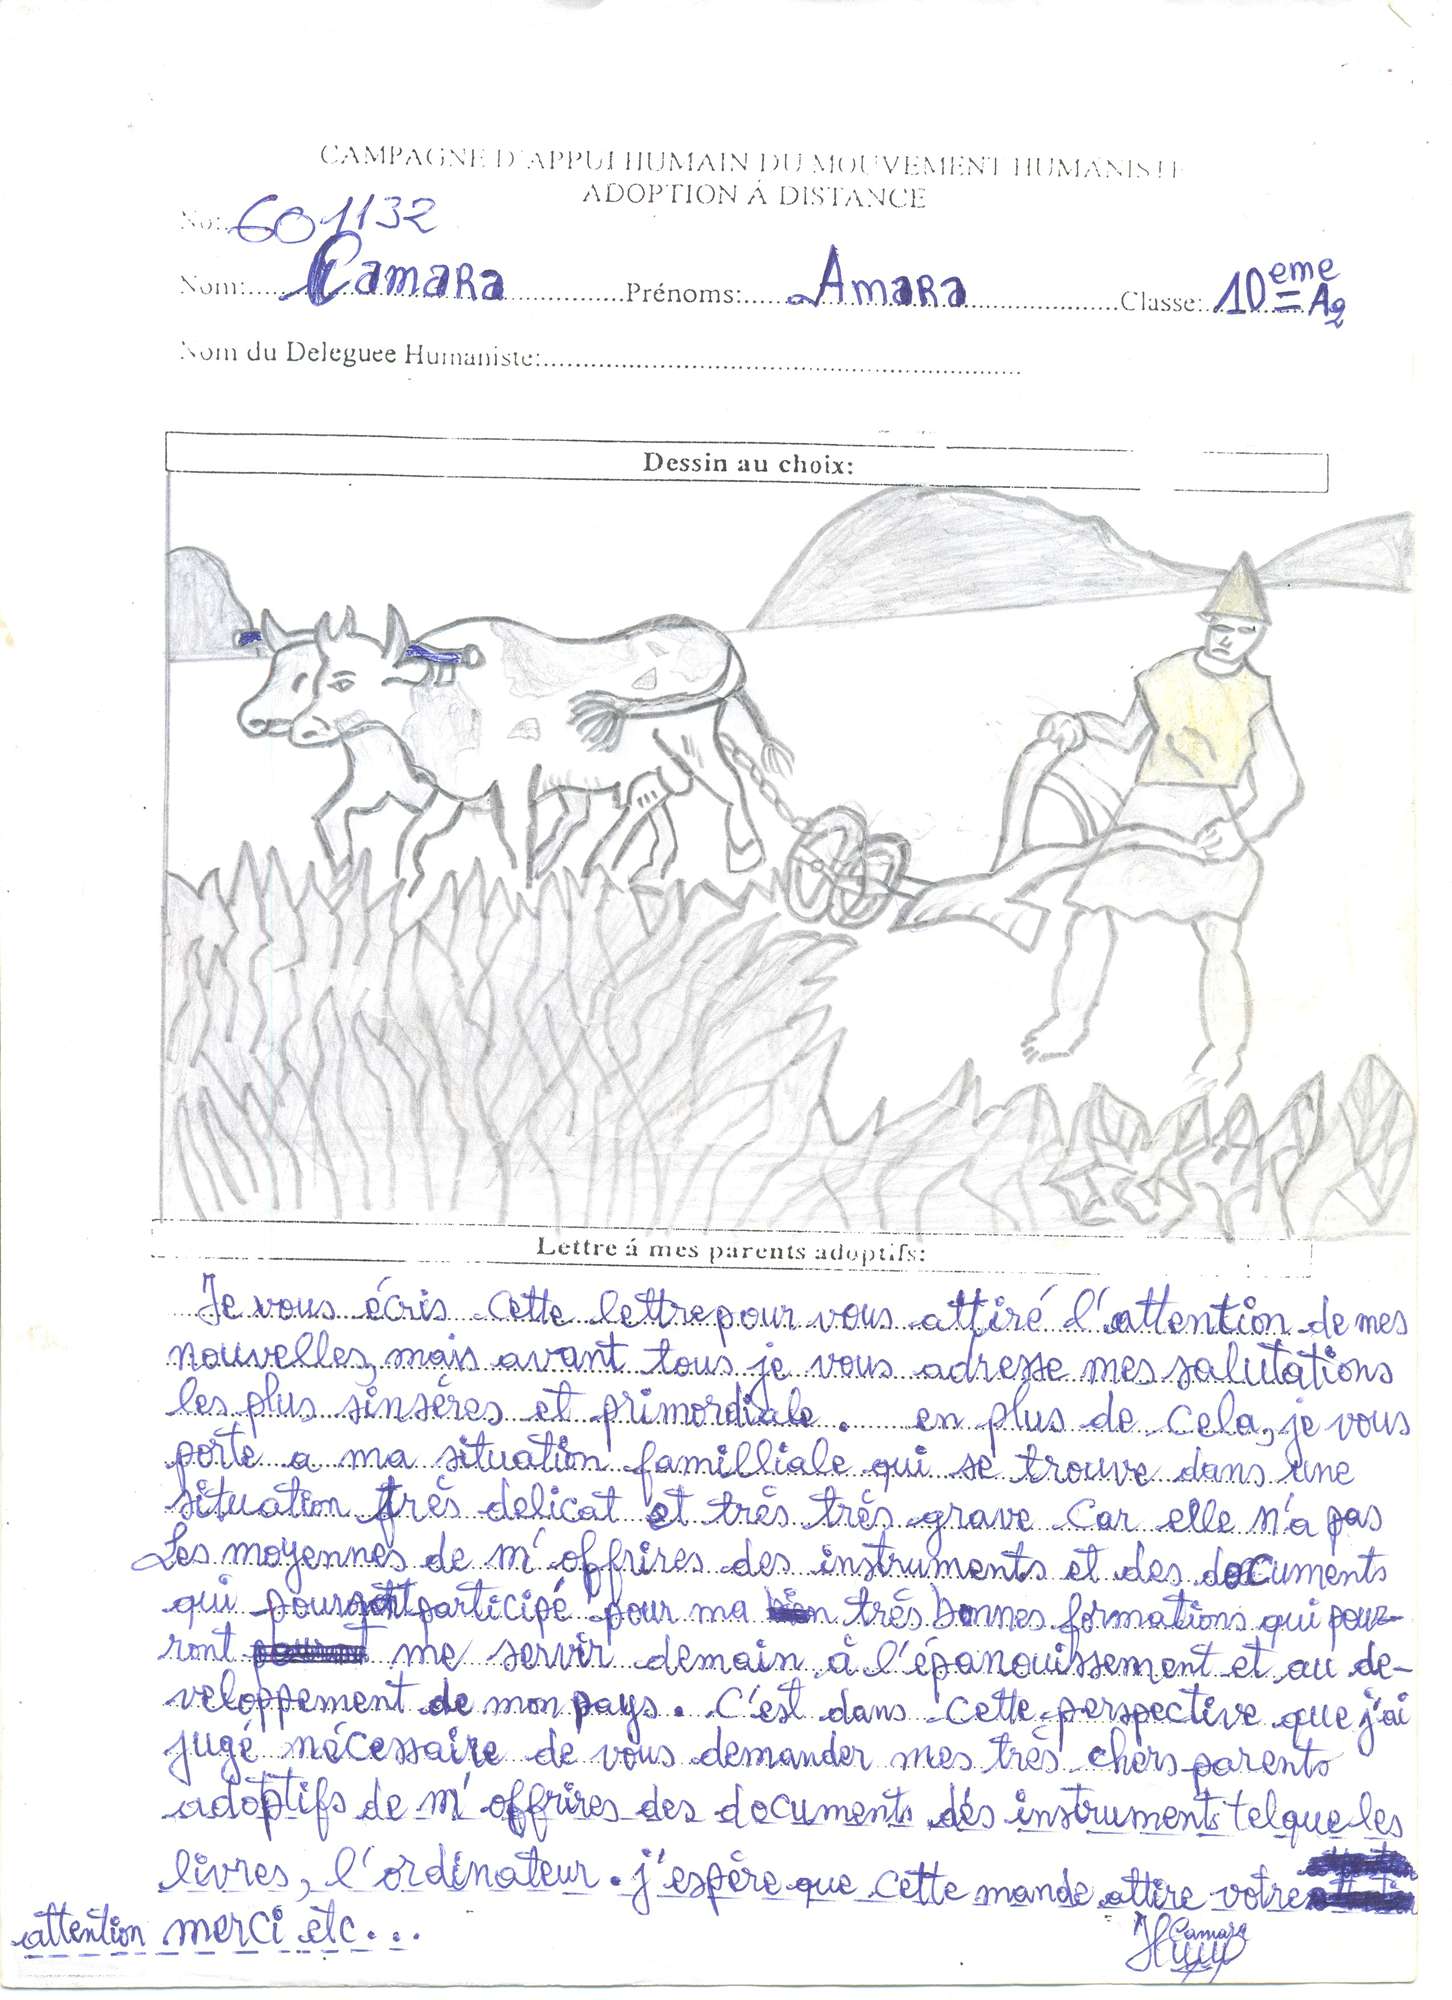 CAMPAGNE D'APPUI HUMAIN DU MOUVEMENT HUMANISTE
ADOPTION Á DISTANCE
No: 601132
Nom: Camara Prénoms: Amara Classe: 10eme A2
Nom du Deleguee Humaniste:
Dessin au choix:
Lettre á mes parents adoptifs:
Je vous écris cette lettre pour vous attiré l'attention de mes
nouvelles, mais avant tous je vous adresse mes salutations
les plus sinsères et primordiale. en plus de cela, je vous
porte a ma situation familliale qui se trouve dans une
situation très delicat et très très grave car elle n'a pas
Les moyennes de m'offrires des instruments et des documents
qui pourront participé pour ma très bonnes formations qui pour-
ront me servir demain à l'épanouissement et au de-
veloppement de mon pays. C'est dans cette perspective que j'ai
jugé nécessaire de vous demander mes très chers parents
adoptifs de m'offrires des documents dés instruments telque les
livres, l'ordinateur. j'espère que cette mande attire votre
attention merci etc...
Camara